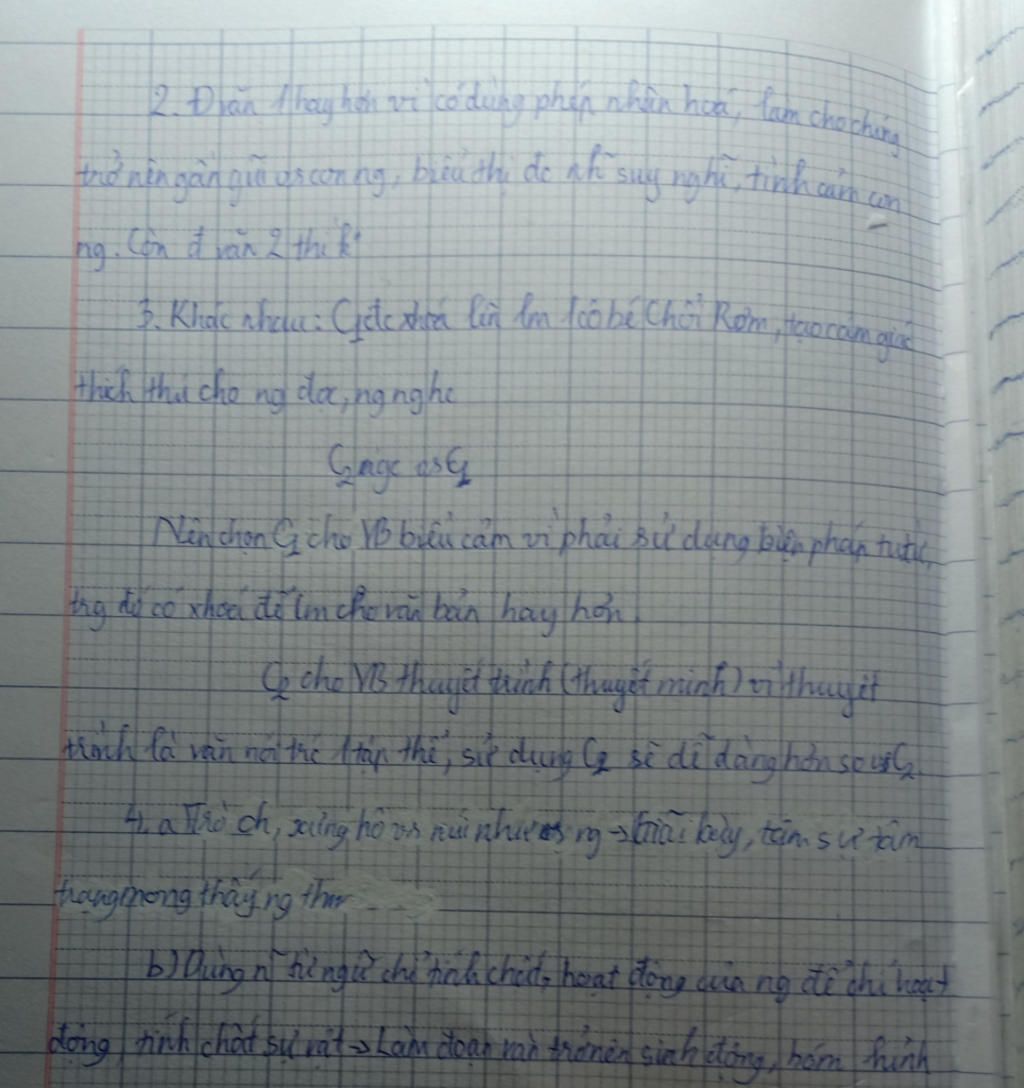 2. Đvăn 1 hay hơn vì có dùng phép nhân hoá, làm cho chúng
trở nên gần gũi vs con ng, biểu thị đc nh~ suy nghĩ, tình cảm con
ng. Còn đ văn 2 thì k
3. Khác nhau: C1 đc nhân lên lm 1 cô bé Chổi Rơm, tạo cảm giác
thích thú cho ng đọc, ng nghe
C2 ngc vs C1
Nên chọn C1 cho VB biểu cảm vì phải sử dụng biện pháp tu từ,
trg đó có nhoá để lm cho văn bản hay hơn.
C2 cho VB thuyết trình (thuyết minh) vì thuyết
trình là văn nói trc 1 tập thể, sử dụng C2 sẽ dễ dàng hơn so vs C2.
4. a Trò ch, xưng hô vs núi như vs ng → Giãi bày, tâm sự tâm
trạng mong thấy ng thw
b) Dùng n~ từ ngữ chỉ tính chất, hoạt động của ng để chỉ hoạt
động, tính chất sự vật → Làm đoạn văn trở nên sinh động, hóm hỉnh